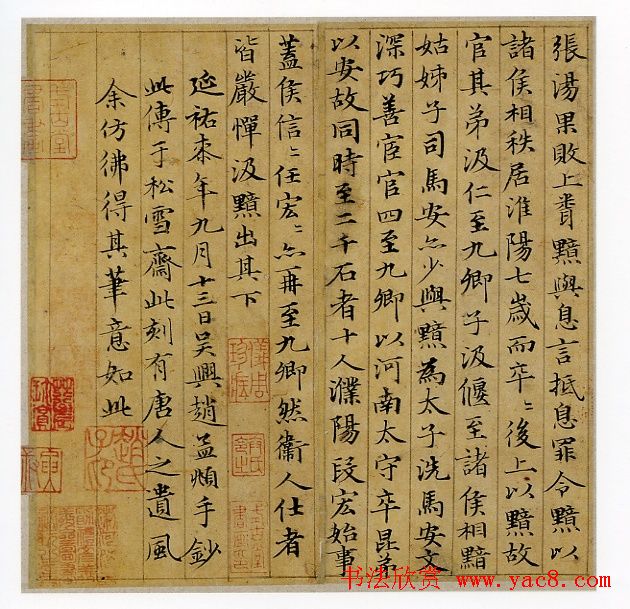 張湯果敗上聞黯與息言抵息罪令黯以
諸侯相秩居淮陽七歲而卒〻後上以黯故
官其弟汲仁至九卿子汲偃至諸侯相黯
姑姊子司馬安亦少與黯為太子洗馬安文
深巧善宦官四至九卿以河南太守卒昆弟
以安故同時至二千石者十人濮陽段宏始事
蓋侯信〻任宏〻亦再至九卿然衛人仕者
皆嚴憚汲黯出其下
延祐柒年九月十三日吳興趙孟頫手鈔
此傳于松雪齋此刻有唐人之遺風
余仿彿得其筆意如此
趙氏子昂
书法欣赏 www.yac8.com